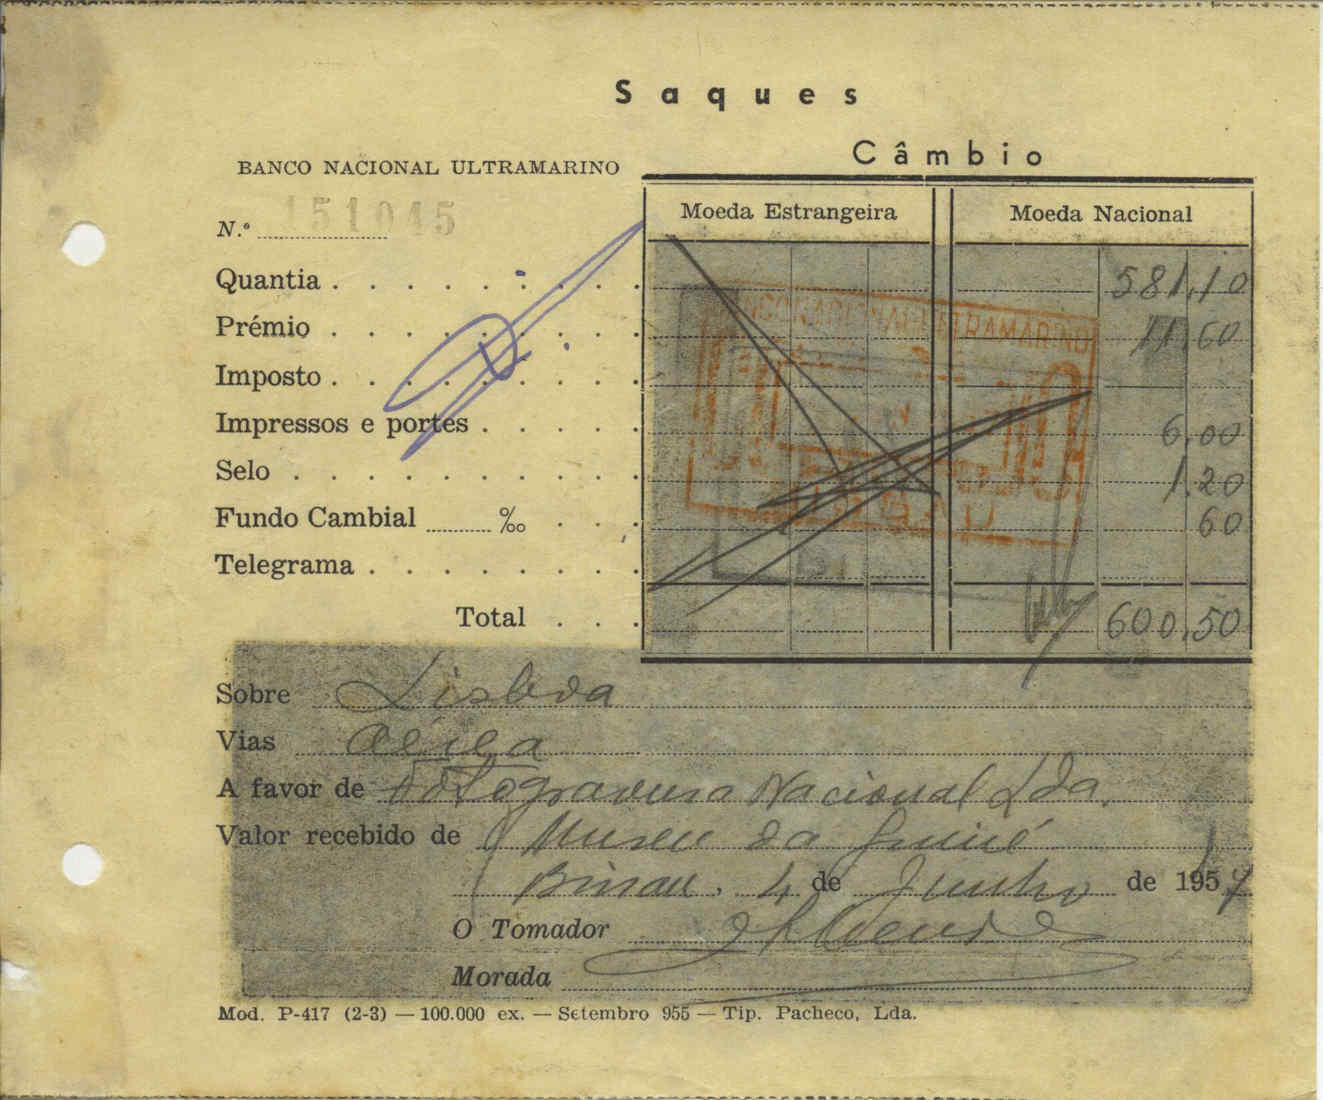 Saques
Câmbio
BANCO NACIONAL ULTRAMARINO
Moeda Estrangeira Moeda Nacional
N.º 151045
Quantia . . . . . . . 581,10
Prémio . . . . . . . 11,60
Imposto . . . . . . .
Impressos e portes . . . . 6,00
Selo . . . . . . . . 1,20
Fundo Cambial ........ ‰ . . . 60
Telegrama . . . . . . .
Total . . . 600,50
BANCO NACIONAL ULTRAMARINO
Sobre Lisboa
Vias Aérea
A favor de Fotogravura Nacional Lda.
Valor recebido de Museu da Guiné
Bissau, 4 de Junho de 1957
O Tomador
Morada
Mod. P-417 (2-3) — 100.000 ex. — Setembro 955 — Tip. Pacheco, Lda.